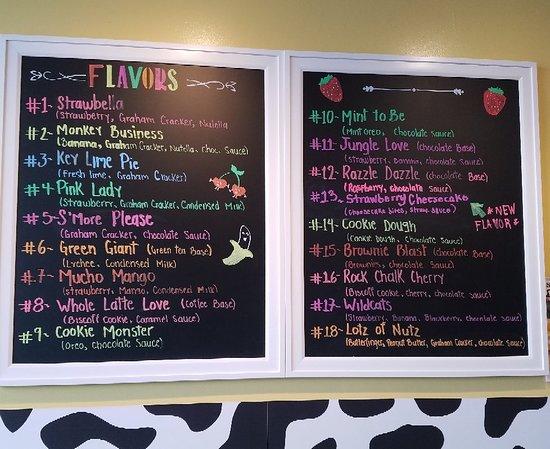 FLAVORS
#1- Strawbella
(Strawberry, Graham Cracker, Nutella
#2- Monkey Business
(Banana, Graham Cracker, Nutella, Choc. Sauce)
#3- Key Lime Pie
(Fresh lime, Graham Cracker)
#4- Pink Lady
(Strawberry, Graham Cracker, Condensed Milk)
#5- S'More Please
(Graham Cracker, Chocolate Sauce)
#6- Green Giant (Green Tea Base)
(Lychee, Condensed Milk)
#7- Mucho Mango
(Strawberry, Mango, Condensed Milk)
#8- Whole Latte Love (Coffee Base)
(Biscoff Cookie, Caramel Sauce)
#9- Cookie Monster
(Oreo, Chocolate Sauce)
#10- Mint to Be
(Mint Oreo, chocolate Sauce)
#11- Jungle Love (Chocolate Base)
(Strawberry, Banana, chocolate Sauce)
#12- Razzle Dazzle (chocolate Base)
(Raspberry, chocolate Sauce)
#13- Strawberry Cheesecake
(Cheesecake bites, Straw. Sauce)
*NEW FLAVOR*
#14- Cookie Dough
(Cookie Dough, Chocolate Sauce)
#15- Brownie Blast (Chocolate Base)
(Brownies, Chocolate Sauce)
#16- Rock Chalk Cherry
(Biscoff Cookie, cherry, chocolate Sauce)
#17- Wildcats
(Strawberry, Banana, Blackberry, chocolate Sauce)
#18- Lotz of Nutz
(Butterfinger, Peanut Butter, Graham Cracker, chocolate Sauce)